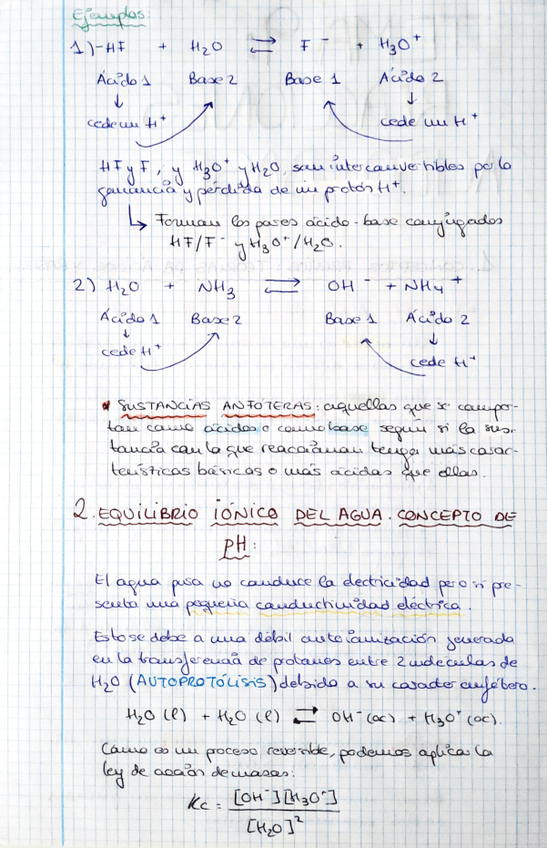 Ejemplos
1) - HF + H₂O ⇌ F⁻ + H₃O⁺
Ácido 1 Base 2 Base 1 Ácido 2
↓ ↓
cede un H⁺ cede un H⁺
HF y F, y H₃O⁺ y H₂O, son intercanvertibles por la
ganancia y pérdida de un protón H⁺.
↳ Forman los pares ácido-base conjugados
HF/F⁻ y H₃O⁺/H₂O.
2) H₂O + NH₃ ⇌ OH⁻ + NH₄⁺
Ácido 1 Base 2 Base 1 Ácido 2
↓ ↓
cede H⁺ cede H⁺
• SUSTANCIAS ANFÓTERAS: aquellas que se compor-
tan como ácidos o como base según si la sus-
tancia con la que reaccionan tenga más carac-
terísticas básicas o más ácidas que ellas.
2. EQUILIBRIO IÓNICO DEL AGUA. CONCEPTO DE
PH:
El agua pura no conduce la electricidad pero si pre-
senta una pequeña conductividad eléctrica.
Esto se debe a una débil autoionización generada
en la transferencia de protones entre 2 moléculas de
H₂O (AUTOPROTÓLISIS) debido a su caracter anfótero.
H₂O (l) + H₂O (l) ⇌ OH⁻ (ac) + H₃O⁺ (ac).
Cómo es un proceso reversible, podemos aplicar la
ley de acción de masas:
Kc = [OH⁻][H₃O⁺]
[H₂O]²